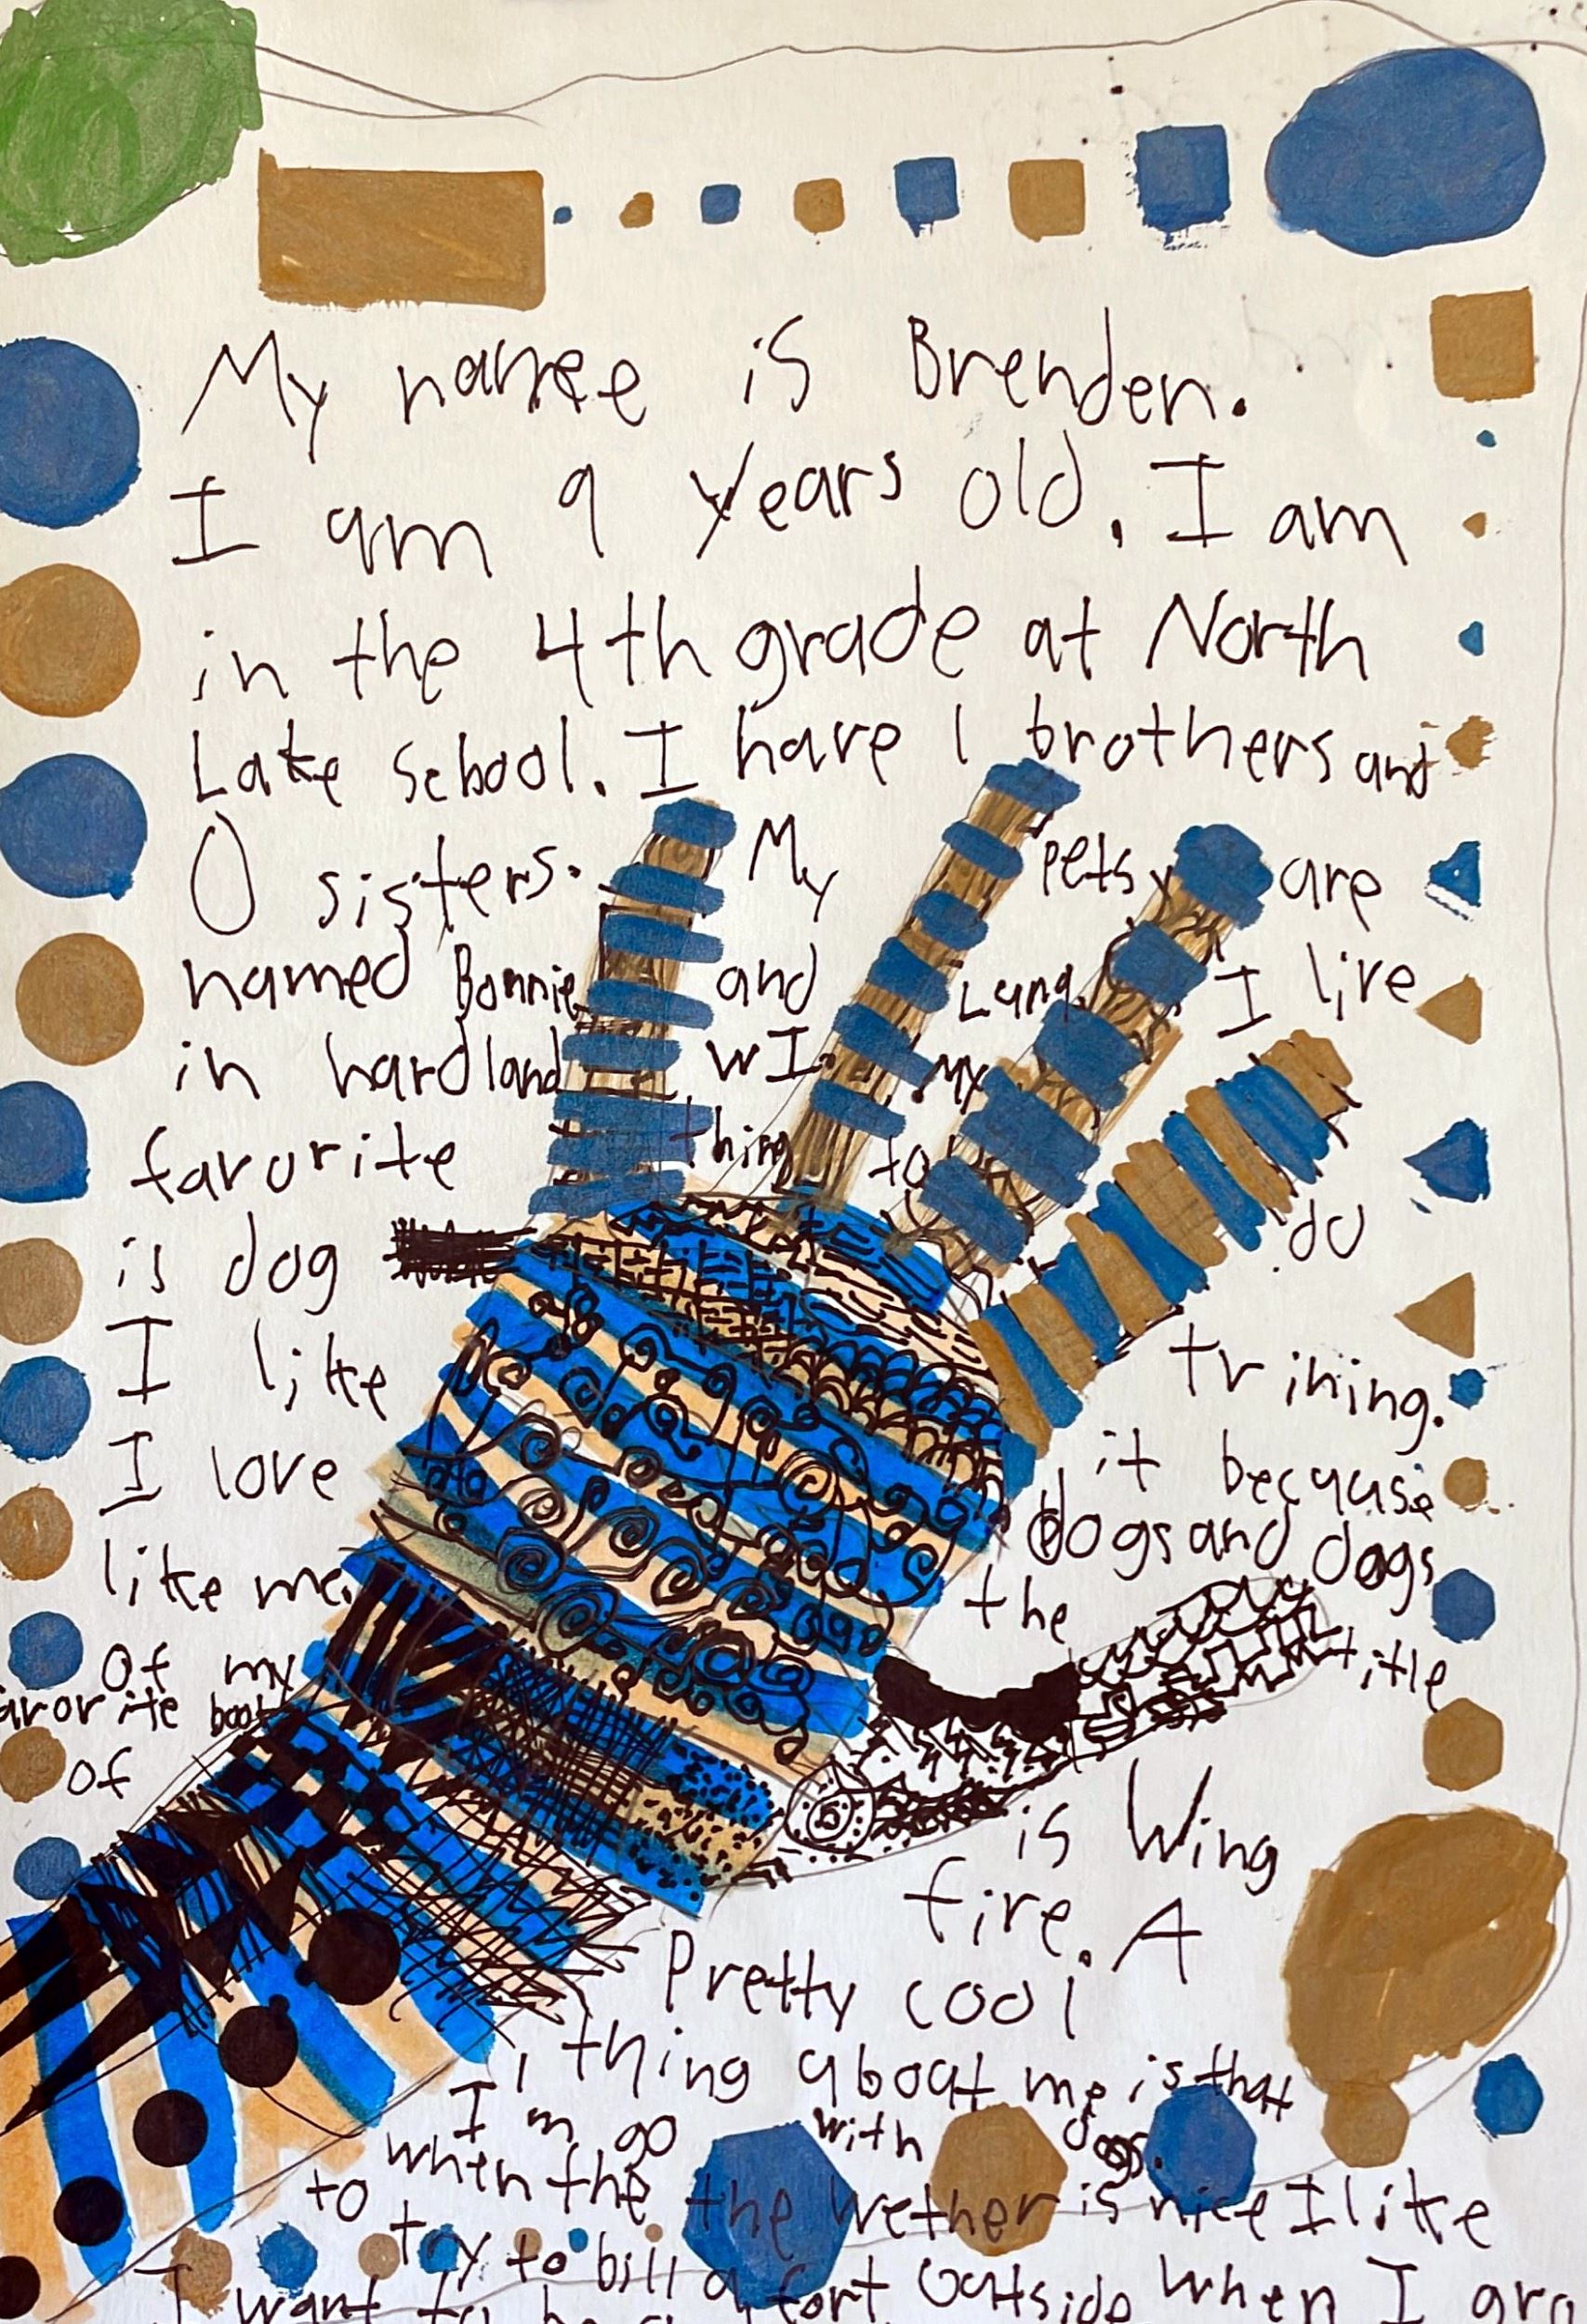 My name is Brenden.
I am 9 years old. I am
in the 4th grade at North
Lake school. I have 1 brothers and
0 sisters. My pets are
named Bonnie and Luna. I live
in hardland WI. My
favorite thing to do
is dog trining.
I like it because
I love dogs and dogs
like me. the title
of my
favorite book
of is Wing
fire. A
Pretty cool
thing about me is that
I'm go with dogs.
when the the wether is nice I like
to try to bill a fort outside when I gro
I want to be a